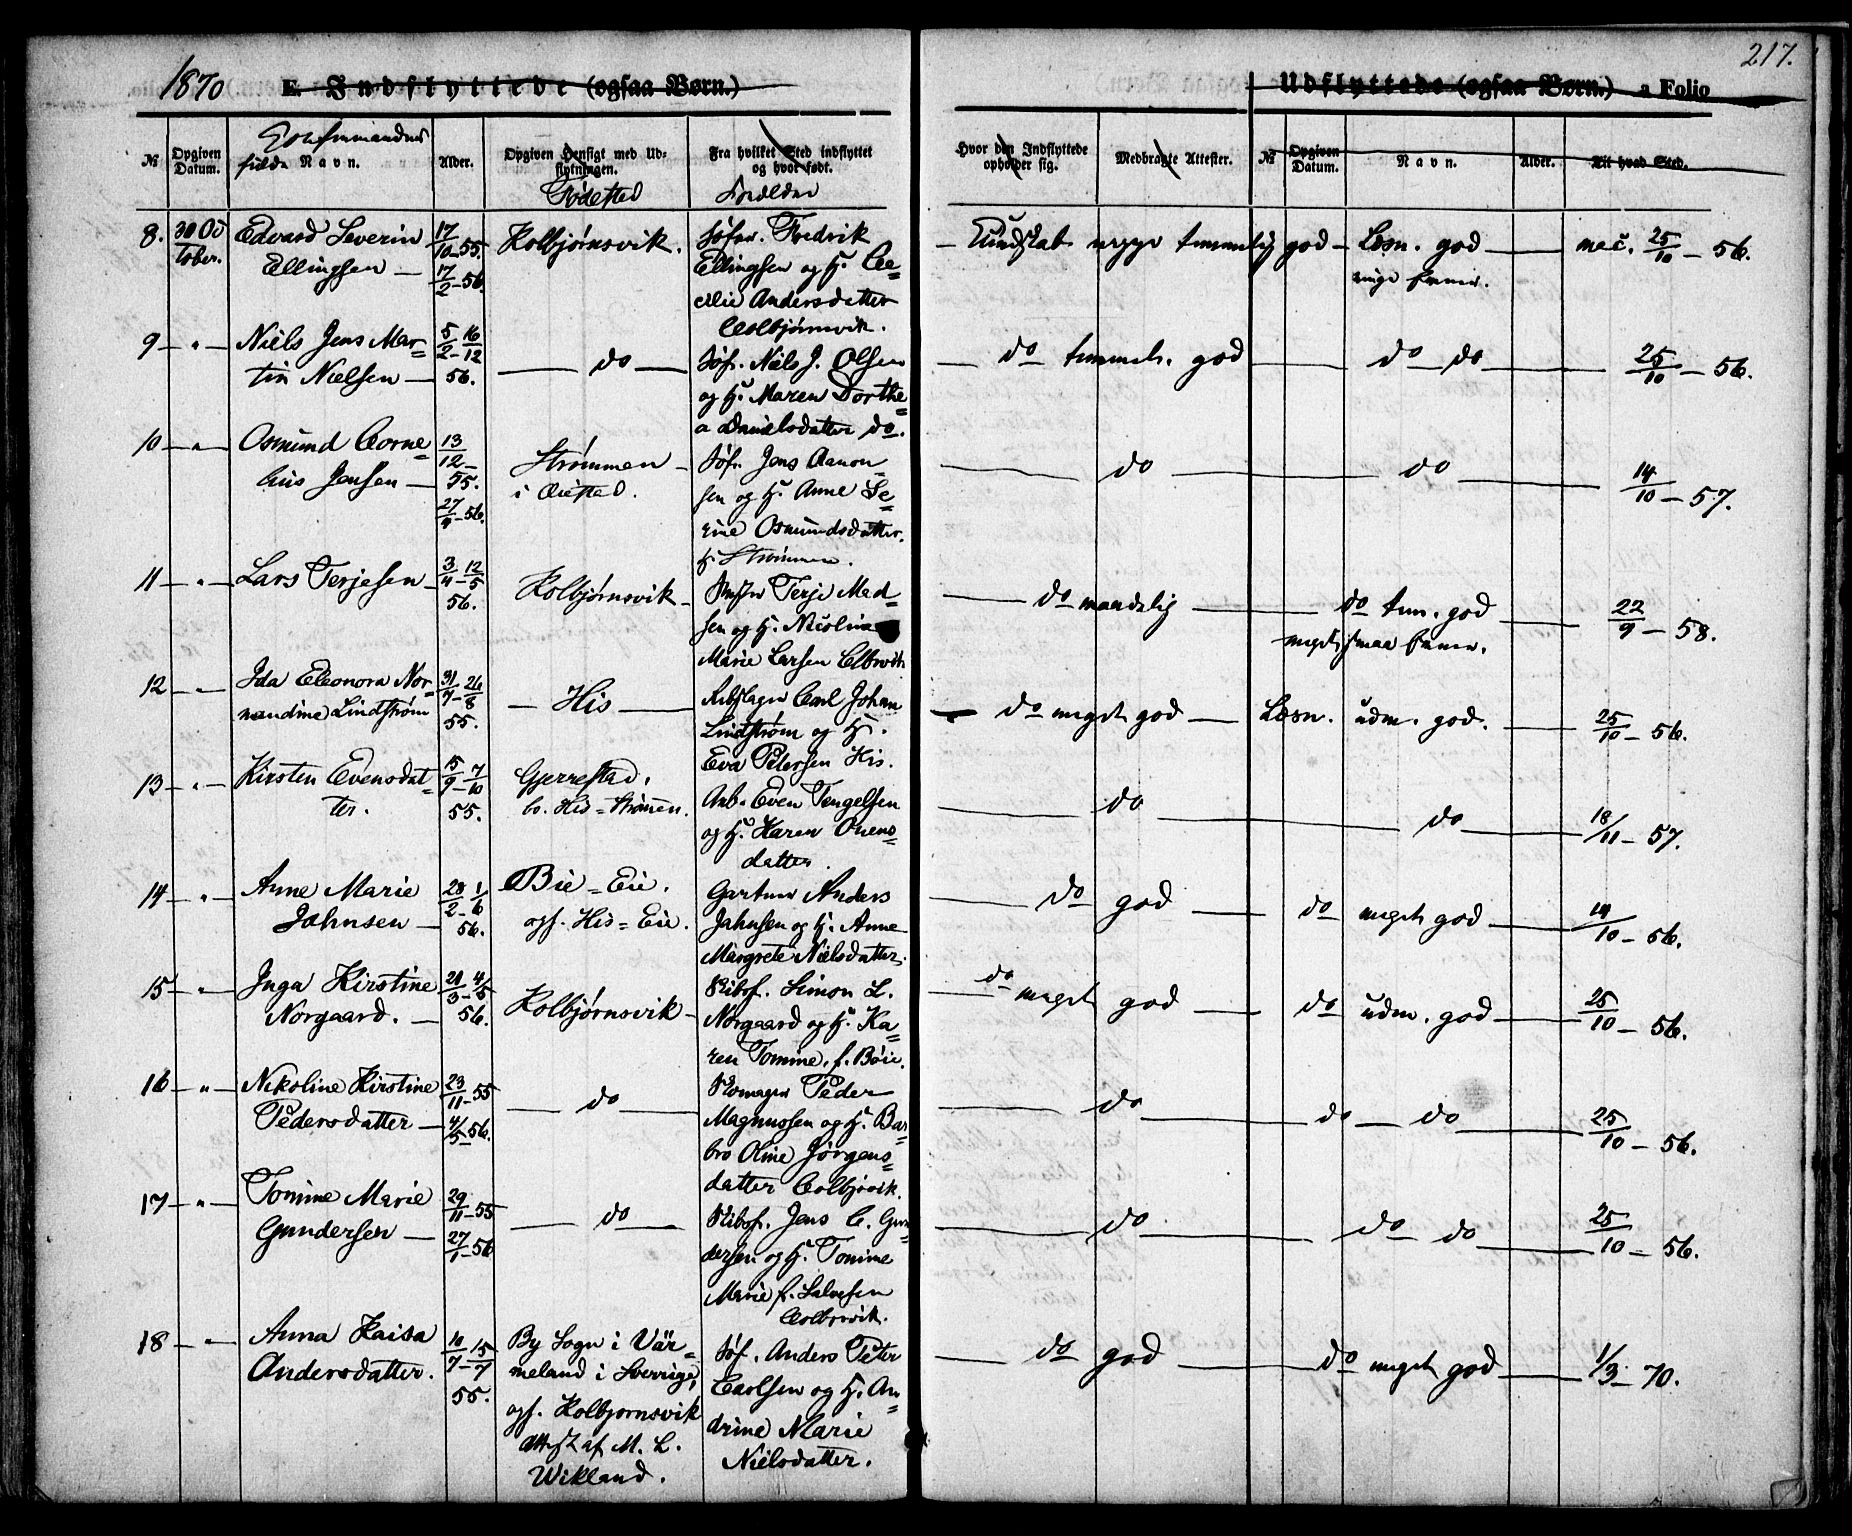 1870 E. Indflyttede (ogsaa Børn.)
Udflyttede (ogsaa Børn.) a Folio 217.
№ Opgiven Datum. Navn. Alder. Opgiven Hensigt med Udflytningen. Fra hvilket Sted indflyttet og hvor født.
Fødested Forældre
Hvor den Indflyttede opholder sig. Medbragte Attester. № Opgiven Datum. Navn. Alder. Til hvad Sted.
8. 30 Oc Edvard Severin 17/10-55. Kolbjørnsvik. Søfar. Fredrik
tober. Ellingsen 17/2-56. Ellingsen og H. Ce=
cilie Andersdatter
Colbjørnsvik.
Kundskab temmelig god Læsn. god vac. 25/10-56.
9 " Niels Jens Mar= 5/2-16/12 do Søf. Niels J. Olsen
tin Nielsen 56. og H. Maren Dorthe=
a Danielsdatter do.
do temmel. god do do 25/10-56.
10 " Osmund Corne= 13/12- Strømmen Søf. Jens Aanon
lius Jensen 55. i Øiestad. sen og H. Anne Se=
27/4-56. rine Osmundsdatter.
Strømmen.
do do 14/10-57.
11 " Lars Terjesen 3/4-12/5 Kolbjørnsvik Terje Mad=
56. sen og H. Nicoline
Marie Larsen Colbrvik
do maadelig do tem. god 22/9-58.
meget smaa
12 " Ida Eleonora Nor= 31/7-26/8 His Rebslager Carl Johan
mandine Lindstrøm 55. Lindstrøm og H.
Eva Petersen His.
do meget god Læsn. udm. god. 25/10-56.
13 " Kirsten Evensdat= 15/9-7/10 Gjerrestad, Arb. Even Tengelsen
ter. 55. bo. His=Strømen. og H. Karen Ouens=
datter
do do 18/11-57.
14 " Anne Marie 28/2-1/6 Bie=Eie. Gartner Anders
Johnsen 56. opf. His=Eie. Jahnsen og H. Anne
Margrete Nielsdatter.
do god do meget god 14/10-56.
15 " Inga Kirstine 21/3-4/5 Kolbjørnsvik Skibsf. Simon L.
Norgaard. 56. Norgaard og H. Ka=
ren Tomine, f. Bøie.
do meget god do udm. god 25/10-56.
16 " Nikoline Kirstine 23/11-55 do Skomager Peder
Pedersdatter 4/5-56. Magnussen og H. Bar=
bro Oline Jørgens=
datter Colbjøvik.
do do do 25/10-56.
17 " Tomine Marie 29/11-55 do Skibsf. Jens C. Gun=
Gundersen 27/1-56 dersen og H. Tomine
Marie f. Salvesen
Colbrvik.
do do do 25/10-56.
18 " Anna Kaisa 10/7-15/7 By Sogn i Vär= Søf. Anders Peter
Andersdatter. 55. meland i Sverrige, Carlsen og H. An=
opf. Kolbjornsvik drine Marie
Attest af M. L. Nielsdatter.
Wikland.
do god do meget god 1/3-70.